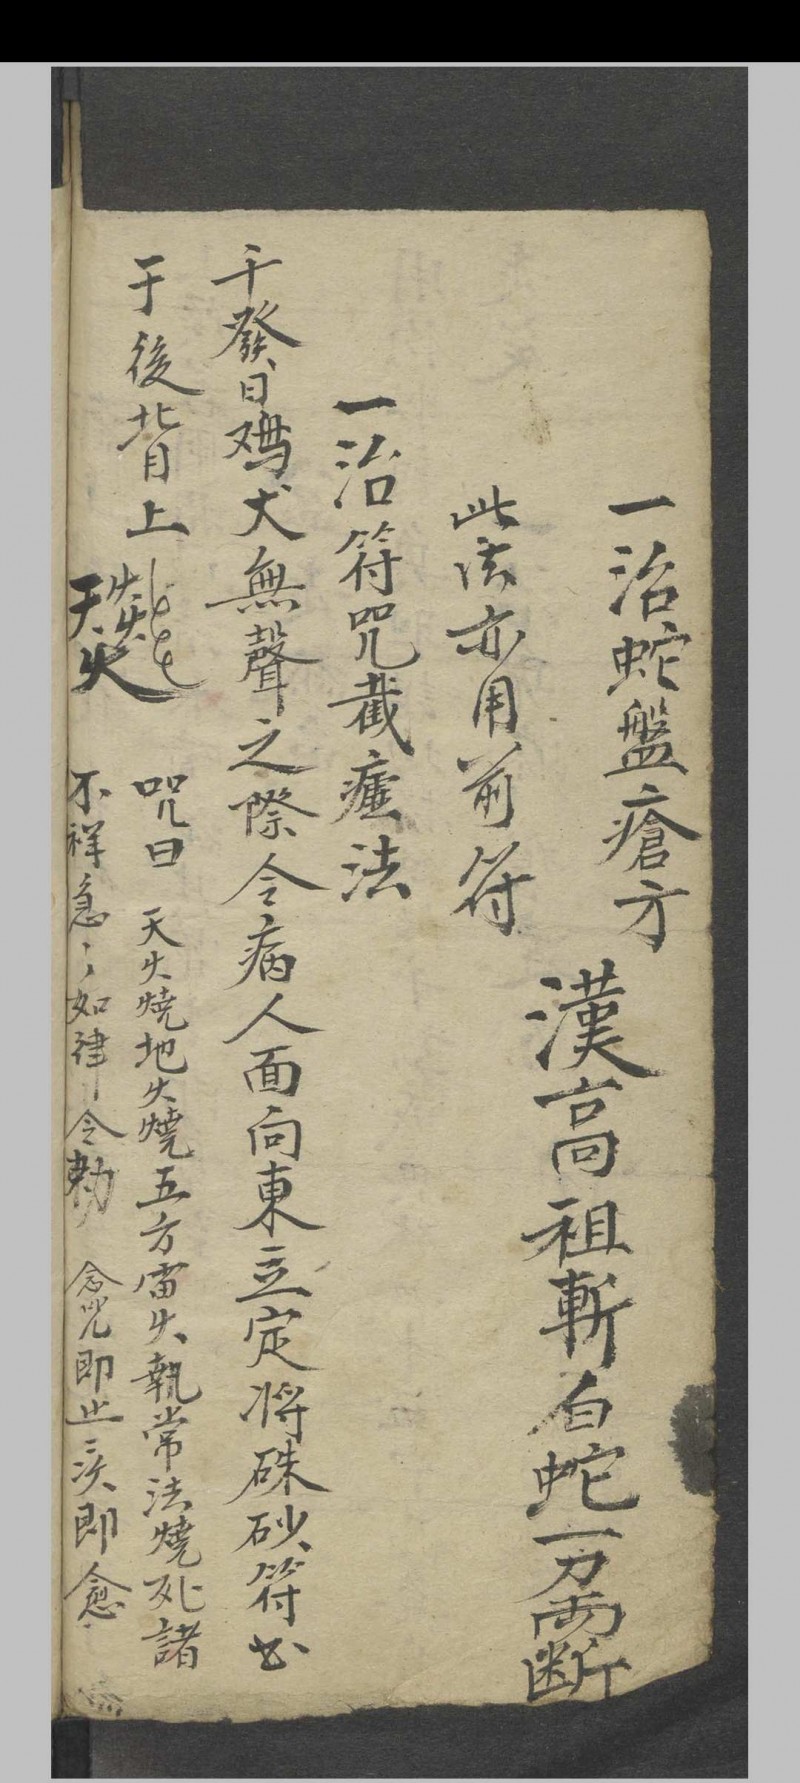 一治蛇盤瘡方
漢高祖斬白蛇一刀兩断
此法亦用前符
一治符咒截瘧法
于發日鸡犬無聲之際令病人面向東立定將硃砂符书
于後背上
咒曰 天火燒地火燒五方雷火執常法燒死諸
不祥急〻如律令勅 念咒即止三次即愈